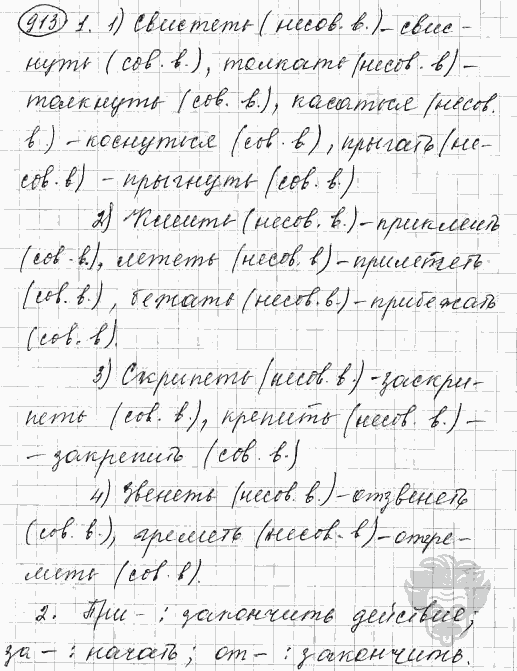 913 1. 1) Свистеть (несов. в.) - свис-
нуть (сов. в.), толкать (несов. в) -
толкнуть (сов. в.), касаться (несов.
в.) - коснуться (сов. в), прыгать (не-
сов. в) - прыгнуть (сов. в.)
2) Клеить (несов. в.) - приклеить
(сов. в.), лететь (несов. в) - прилететь
(сов. в.), бежать (несов. в.) - прибежать
(сов. в).
3) Скрипеть (несов. в.) - заскри-
петь (сов. в.), крепить (несов. в.) -
- закрепить (сов. в.)
4) Звенеть (несов. в.) - отзвенеть
(сов. в.), греметь (несов. в) - отгре-
меть (сов. в).
2. При - : закончить действие;
за - : начать; от - : закончить.